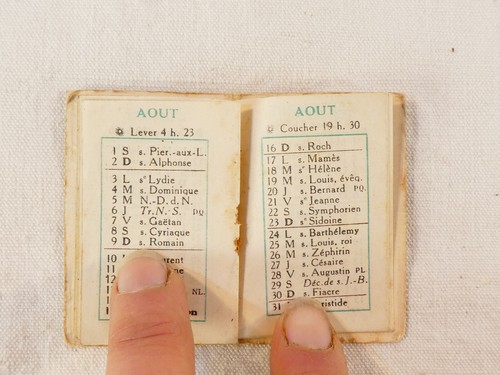 AOUT
Lever 4 h. 23
1 S s. Pier.-aux-L.
2 D s. Alphonse
3 L sᵉ Lydie
4 M s. Dominique
5 M N.-D. d. N.
6 J Tr. N.-S. P.Q.
7 V s. Gaëtan
8 S s. Cyriaque
9 D s. Romain
10
11
12
NL.
AOUT
Coucher 19 h. 30
16 D s. Roch
17 L s. Mamès
18 M sᵉ Hélène
19 M s. Louis, évêq.
20 J s. Bernard PQ.
21 V sᵉ Jeanne
22 S s. Symphorien
23 D sᵉ Sidoine
24 L s. Barthélemy
25 M s. Louis, roi
26 M s. Zéphirin
27 J s. Césaire
28 V s. Augustin PL
29 S Déc. de s. J.-B.
30 D s. Fiacre
31